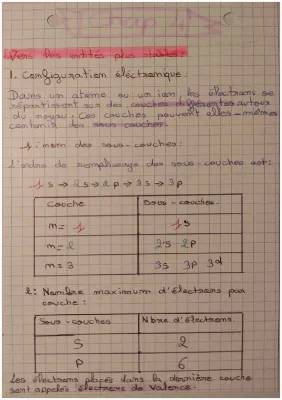 Vers des entités plus stables.
1. Configuration électronique.
Dans un atome ou un ion, les électrons se
répartissent sur des couches différentes autour
du noyau. Ces couches peuvent elles-mêmes
contenir des sous couches.
1: nom des sous-couches.
L'ordre de remplissage des sous-couches est:
1s → 2s → 2p → 3s → 3p
Couche Sous-couches
n= 1 1s
n= 2 2s 2p
n= 3 3s 3p 3d
2: Nombre maximum d'électrons par
couche:
Sous-couches Nbre d'électrons
S 2
P 6
Les électrons placés dans la dernière couche
sont appelés électrons de valence.